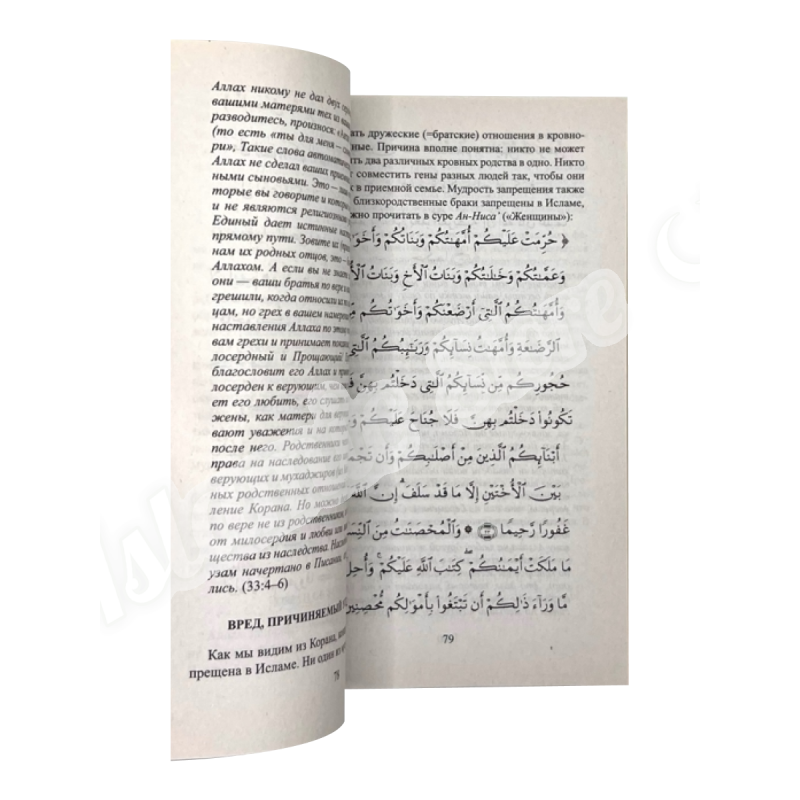 Аллах никому не дал двух
вашими матерями тех из
разводитесь, произнося:
(то есть «ты для меня –
ри», Такие слова автомати
Аллах не сделал ваших прием
ными сыновьями. Это –
торые вы говорите и котор
и не являются религиозным
Единый дает истинные
прямому пути. Зовите их
нам их родных отцов,
Аллахом. А если вы не знает
они — ваши братья по вере и
грешили, когда относили их
цам, но грех в вашем намере
наставления Аллаха по этим
вам грехи и принимает
лосердный и Прощающий
благословит его Аллах и при
лосерден к верующим,
его любить, его слушат
жены, как матери для вер
вают уважения и на котор
после него. Родственник
права на наследование по
верующих и мухаджиров
ных родственных отноше
ление Корана. Но можно
по вере не из родственников
от милосердия и любви
щества из наследства. Нас
узам начертано в Писании,
лись. (33:4–6)
ВРЕД, ПРИЧИНЯЕМЫЙ
Как мы видим из Корана,
прещена в Исламе. Ни один
78
ать дружеские (=братские) отношения в кровно-
ные. Причина вполне понятна: никто не может
ть два различных кровных родства в одно. Никто
т совместить гены разных людей так, чтобы они
к в приемной семье. Мудрость запрещения также
близкородственные браки запрещены в Исламе,
жно прочитать в суре Ан-Ниса’ («Женщины»):
﴿ حُرِّمَتْ عَلَيْكُمْ أُمَّهَٰتُكُمْ وَبَنَاتُكُمْ وَأَخَوَ
وَعَمَّٰتُكُمْ وَخَٰلَٰتُكُمْ وَبَنَاتُ ٱلْأَخِ وَبَنَاتُ ٱلْأُ
وَأُمَّهَٰتُكُمُ ٱلَّٰتِىٓ أَرْضَعْنَكُمْ وَأَخَوَٰتُكُم مِّ
ٱلرَّضَٰعَةِ وَأُمَّهَٰتُ نِسَآئِكُمْ وَرَبَٰٓئِبُكُمُ ٱلَّٰتِى
حُجُورِكُم مِّن نِّسَآئِكُمُ ٱلَّٰتِى دَخَلْتُم بِهِنَّ فَ
تَكُونُوا۟ دَخَلْتُم بِهِنَّ فَلَا جُنَاحَ عَلَيْكُمْ وَ
أَبْنَآئِكُمُ ٱلَّذِينَ مِنْ أَصْلَٰبِكُمْ وَأَن تَجْمَ
بَيْنَ ٱلْأُخْتَيْنِ إِلَّا مَا قَدْ سَلَفَ ۗ إِنَّ ٱللَّهَ
غَفُورًا رَّحِيمًا ﴿٢٣﴾ ۞ وَٱلْمُحْصَنَٰتُ مِنَ ٱلنِّسَ
مَا مَلَكَتْ أَيْمَٰنُكُمْ ۖ كِتَٰبَ ٱللَّهِ عَلَيْكُمْ ۚ وَأُحِلَّ
مَّا وَرَآءَ ذَٰلِكُمْ أَن تَبْتَغُوا۟ بِأَمْوَٰلِكُم مُّحْصِنِينَ
79